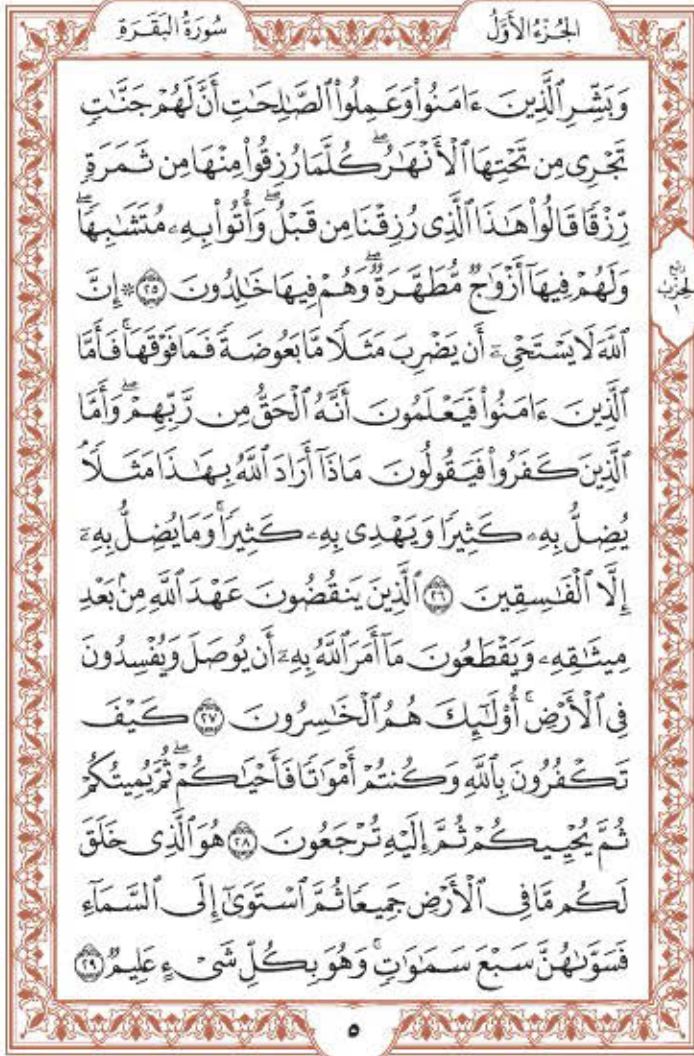 سُورَةُ البَقَرَةِ الجُزْءُ الأَوَّلُ
وَبَشِّرِ ٱلَّذِينَ ءَامَنُوا۟ وَعَمِلُوا۟ ٱلصَّـٰلِحَـٰتِ أَنَّ لَهُمْ جَنَّـٰتٍ
تَجْرِى مِن تَحْتِهَا ٱلْأَنْهَـٰرُ ۖ كُلَّمَا رُزِقُوا۟ مِنْهَا مِن ثَمَرَةٍ
رِّزْقًا قَالُوا۟ هَـٰذَا ٱلَّذِى رُزِقْنَا مِن قَبْلُ ۖ وَأُتُوا۟ بِهِۦ مُتَشَـٰبِهًا ۖ
وَلَهُمْ فِيهَآ أَزْوَٰجٌ مُّطَهَّرَةٌ ۖ وَهُمْ فِيهَا خَـٰلِدُونَ ٢٥ ۞ إِنَّ
ربع الحزب ١
ٱللَّهَ لَا يَسْتَحْىِۦٓ أَن يَضْرِبَ مَثَلًا مَّا بَعُوضَةً فَمَا فَوْقَهَا ۚ فَأَمَّا
ٱلَّذِينَ ءَامَنُوا۟ فَيَعْلَمُونَ أَنَّهُ ٱلْحَقُّ مِن رَّبِّهِمْ ۖ وَأَمَّا
ٱلَّذِينَ كَفَرُوا۟ فَيَقُولُونَ مَاذَآ أَرَادَ ٱللَّهُ بِهَـٰذَا مَثَلًا ۘ
يُضِلُّ بِهِۦ كَثِيرًا وَيَهْدِى بِهِۦ كَثِيرًا ۚ وَمَا يُضِلُّ بِهِۦٓ
إِلَّا ٱلْفَـٰسِقِينَ ٢٦ ٱلَّذِينَ يَنقُضُونَ عَهْدَ ٱللَّهِ مِنۢ بَعْدِ
مِيثَـٰقِهِۦ وَيَقْطَعُونَ مَآ أَمَرَ ٱللَّهُ بِهِۦٓ أَن يُوصَلَ وَيُفْسِدُونَ
فِى ٱلْأَرْضِ ۚ أُو۟لَـٰٓئِكَ هُمُ ٱلْخَـٰسِرُونَ ٢٧ كَيْفَ
تَكْفُرُونَ بِٱللَّهِ وَكُنتُمْ أَمْوَٰتًا فَأَحْيَـٰكُمْ ۖ ثُمَّ يُمِيتُكُمْ
ثُمَّ يُحْيِيكُمْ ثُمَّ إِلَيْهِ تُرْجَعُونَ ٢٨ هُوَ ٱلَّذِى خَلَقَ
لَكُم مَّا فِى ٱلْأَرْضِ جَمِيعًا ثُمَّ ٱسْتَوَىٰٓ إِلَى ٱلسَّمَآءِ
فَسَوَّىٰهُنَّ سَبْعَ سَمَـٰوَٰتٍ ۚ وَهُوَ بِكُلِّ شَىْءٍ عَلِيمٌ ٢٩
٥